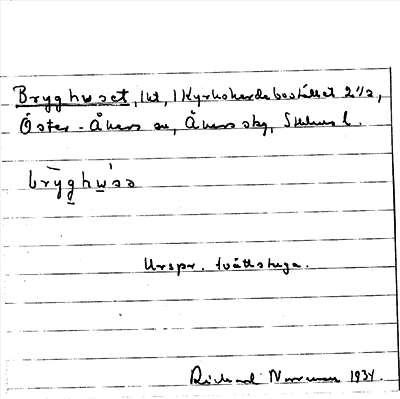 Bryghuset, lht, 1 Kyrkoherdebostället 2 1/2,
Öster-Åkers sn, Åkers skg, Sthlms l.
Urspr. tvättstuga.
Rickard 1934.